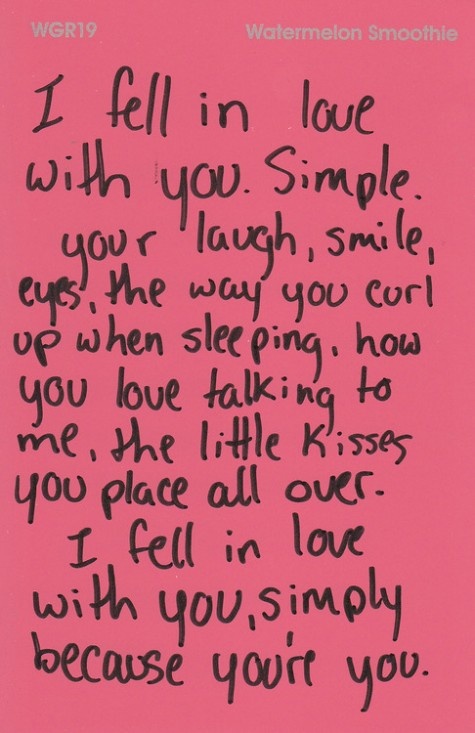 WGR19 Watermelon Smoothie
I fell in love
with you. Simple.
your laugh, smile,
eyes, the way you curl
up when sleeping, how
you love talking to
me, the little kisses
you place all over.
I fell in love
with you, simply
because you're you.